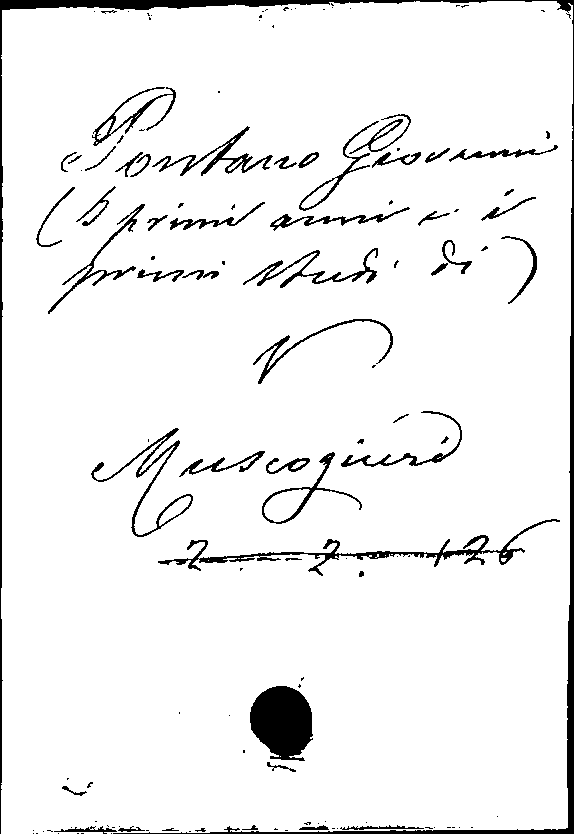 Pontano Giovanni
(I primi anni e i
primi studi di)
V
Muscogiuri
2. 2. 126